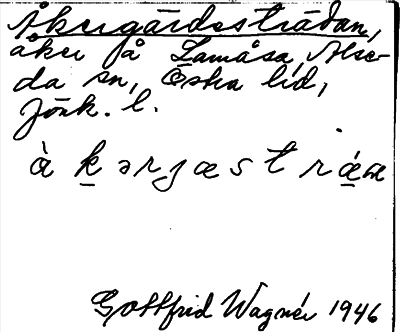 Åkergärdesträdan,
åker på Lamåsa, Alse-
da sn, Östra hd,
Jönk. l.
à k ə r j æ s t r á æ
Gottfrid Wagnér 1946